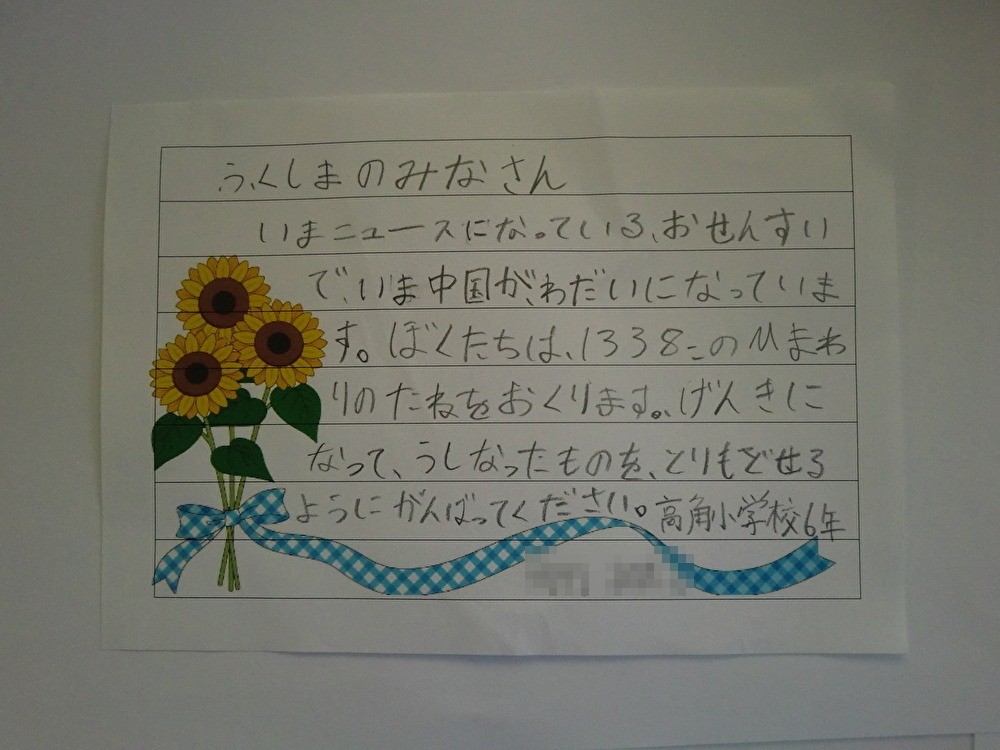 ふくしまのみなさん
いまニュースになっている、おせんすい
で、いま中国が、わだいになっていま
す。ぼくたちは、1338このひまわ
りのたねをおくります。げんきに
なって、うしなったものを、とりもどせる
ようにがんばってください。高角小学校6年